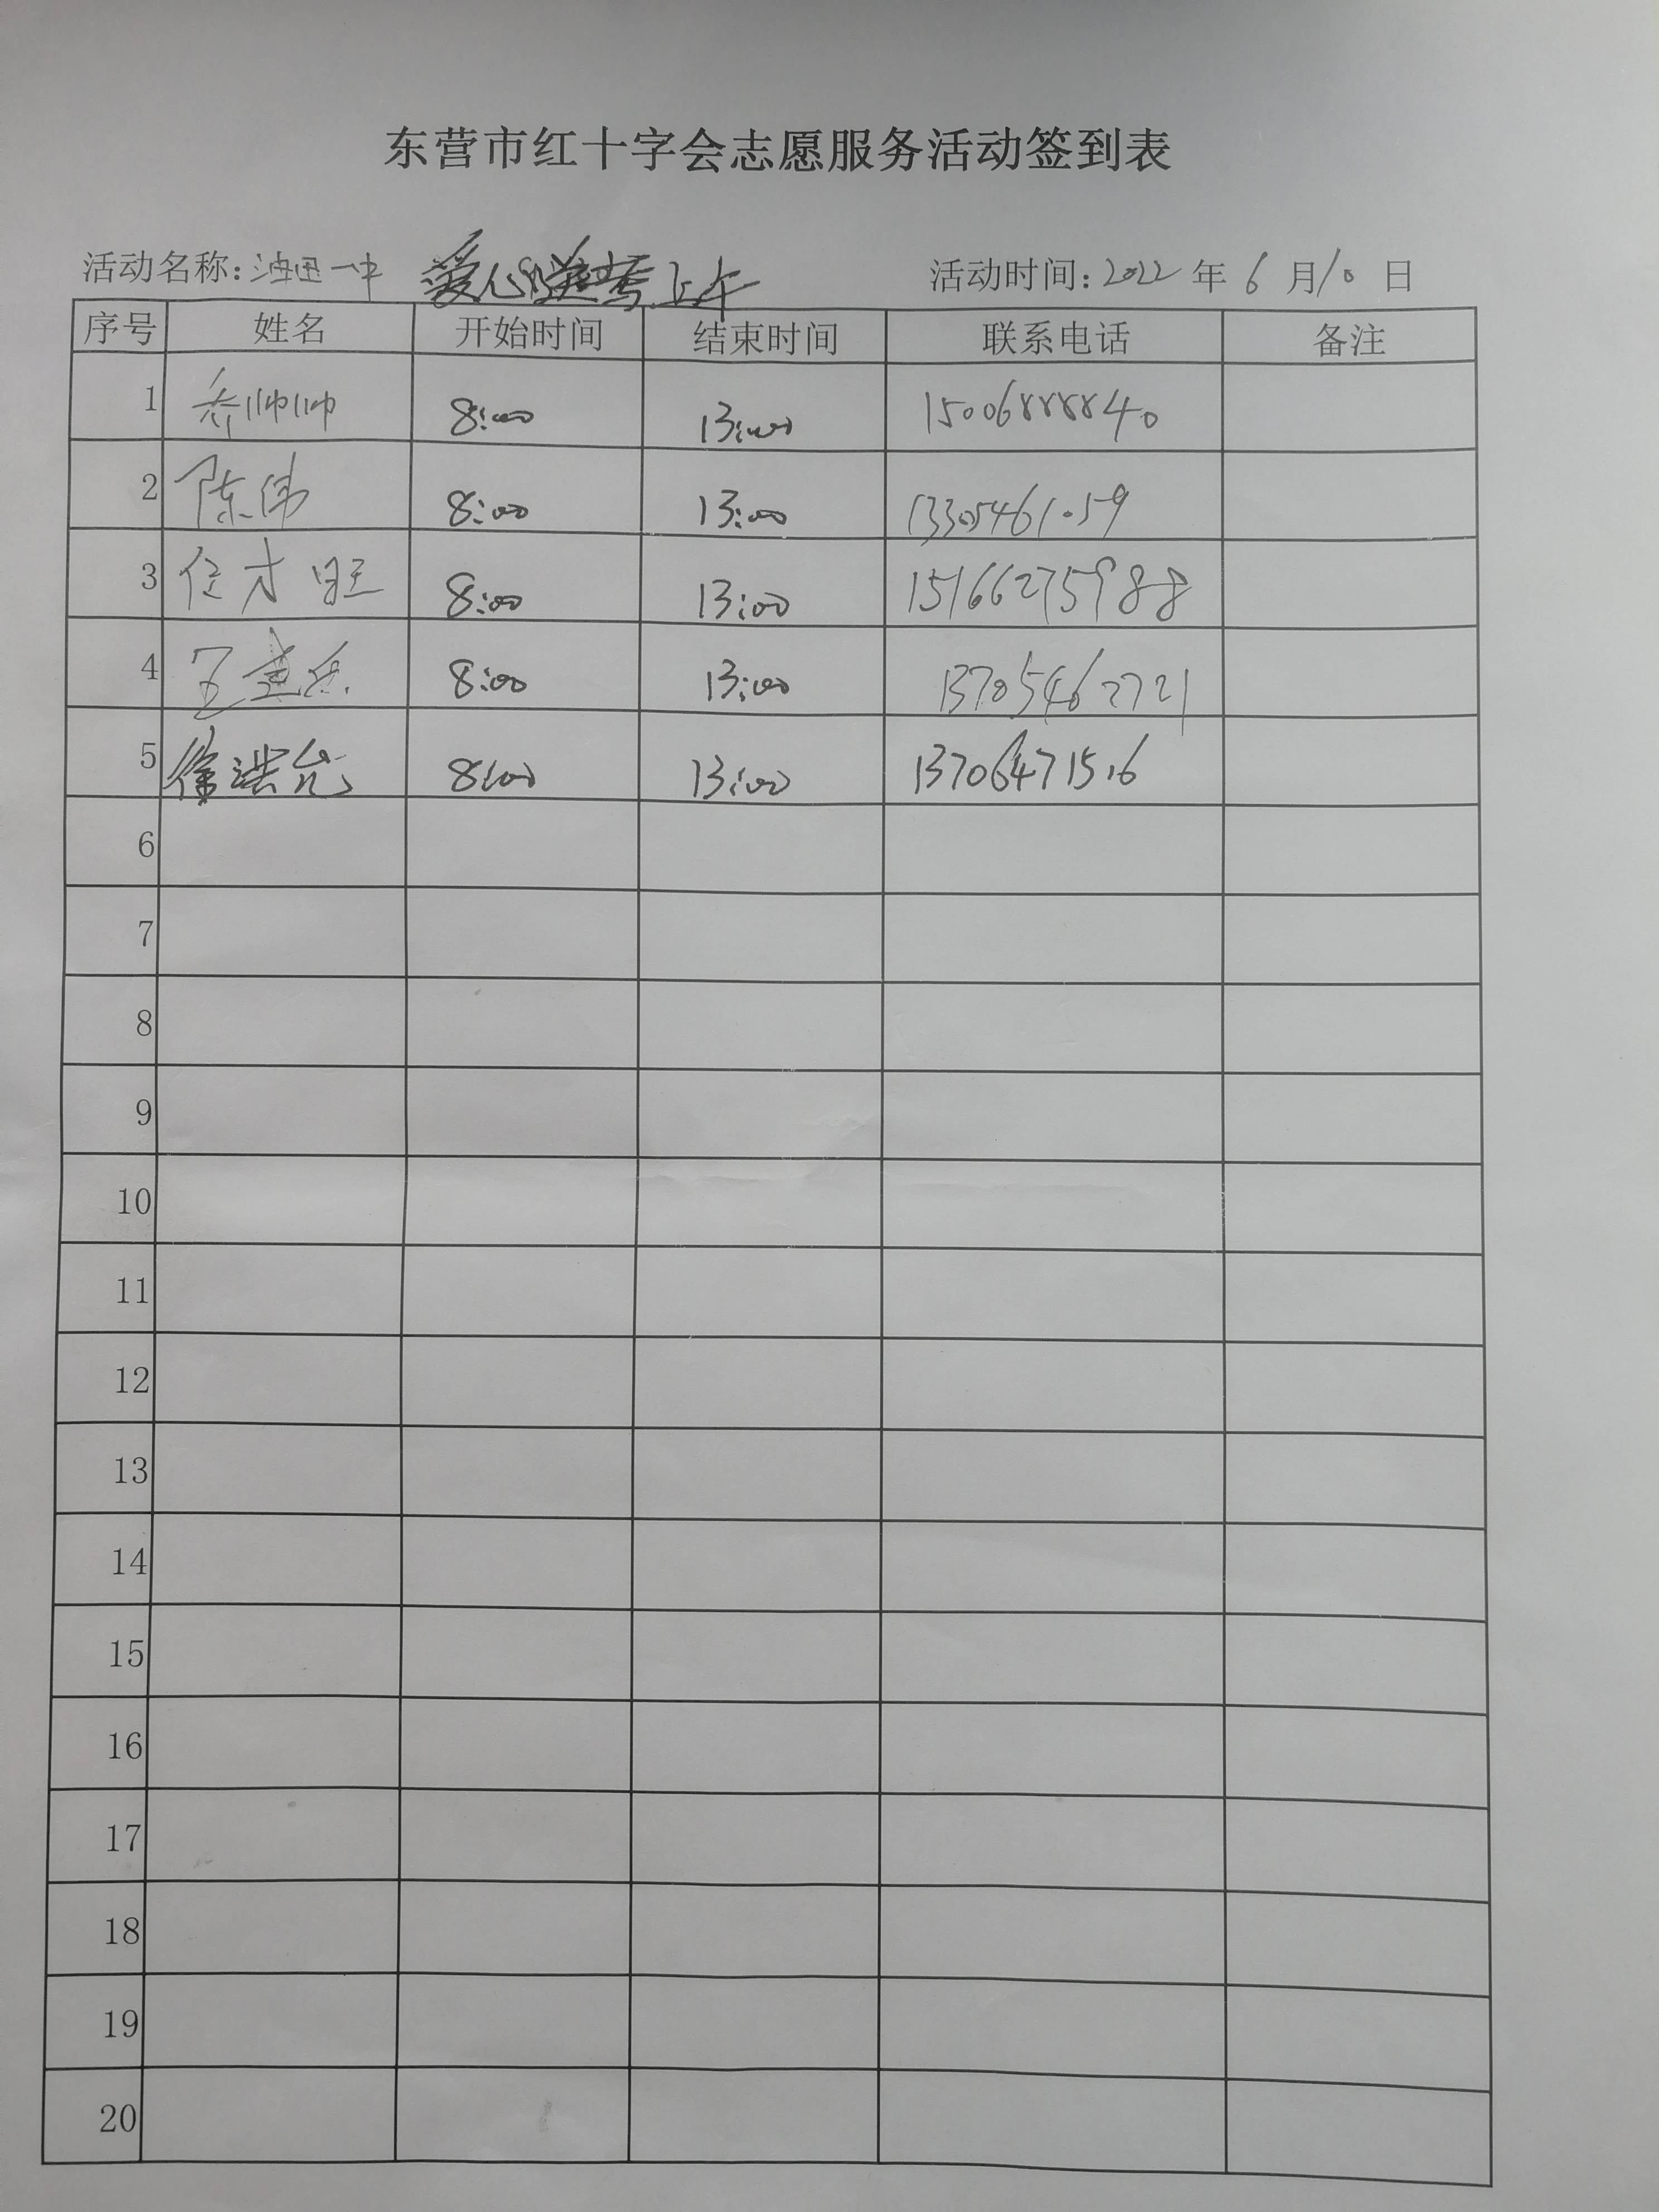 东营市红十字会志愿服务活动签到表
活动名称: 油田一中 爱心送考 上午 活动时间: 2022 年 6 月 10 日
序号 姓名 开始时间 结束时间 联系电话 备注
1 乔帅帅 8:00 13:00 15006888840
2 陈伟 8:00 13:00 13305461059
3 任才旺 8:00 13:00 15166275988
4 王 8:00 13:00 13705462721
5 徐洪允 8:00 13:00 13706471516
6
7
8
9
10
11
12
13
14
15
16
17
18
19
20